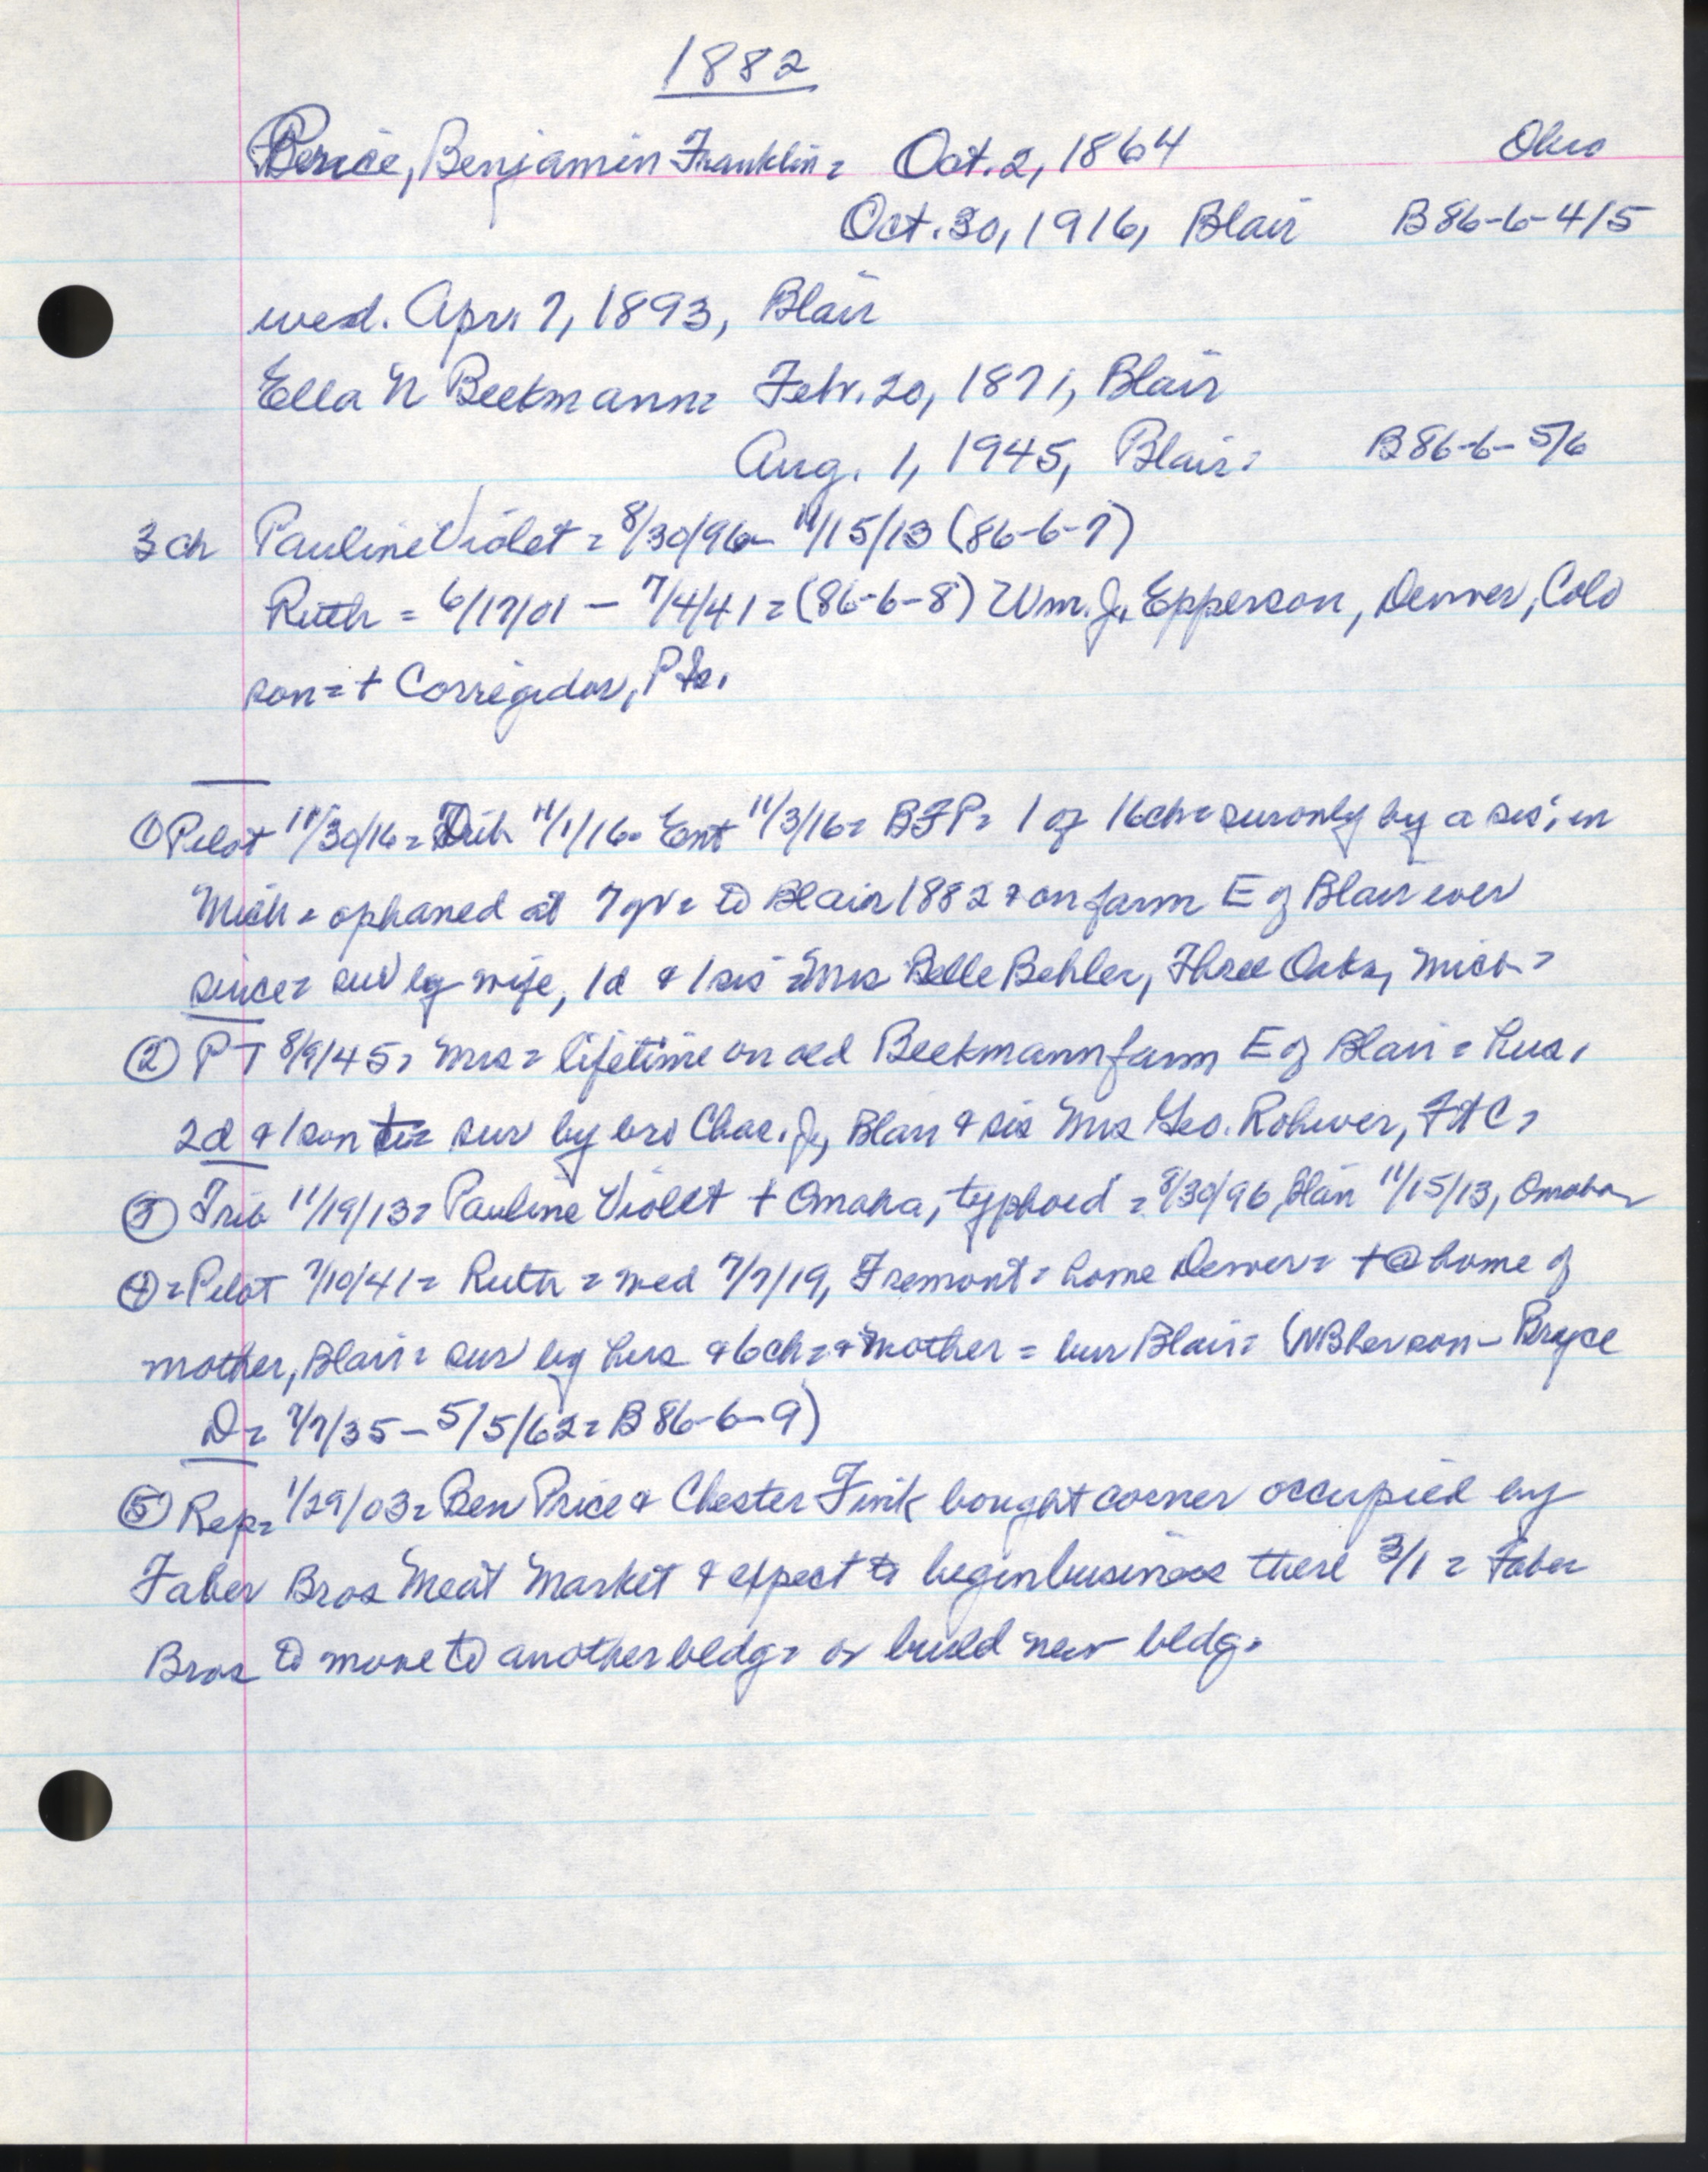 1882
Price, Benjamin Franklin = Oct. 2, 1864 Ohio
Oct. 30, 1916, Blair B 86-6-4/5
wed. Apr. 7, 1893, Blair
Ella N Beekmann = Feb. 20, 1871, Blair
Aug. 1, 1945, Blair = B 86-6-5/6
3 ch Pauline Violet = 8/30/96 - 11/15/13 (86-6-7)
Ruth = 6/17/01 - 7/4/41 = (86-6-8) Wm. J. Epperson, Denver, Colo
son = + Corregidor, P Is.
① Pilot 11/30/16 = Trib 11/1/16 = Ent 11/3/16 = BFP = 1 of 16 ch = sur only by a sis in
Mich = ophaned at 7 yr = to Blair 1882 & on farm E of Blair ever
since = sur by wife, 1d & 1 sis = Mrs Belle Behler, Three Oaks, Mich =
② PT 8/9/45 = Mrs = lifetime on old Beekmann farm E of Blair = hus,
2d & 1 son sur by bro Chas. J, Blair & sis Mrs Geo. Rohwer, FtC =
③ Trib 11/19/13 = Pauline Violet + Omaha, typhoid = 8/30/96, Blair 11/15/13, Omaha
④ = Pilot 7/10/41 = Ruth = wed 7/7/19, Fremont = home Denver = + @ home of
mother, Blair = sur by hus & 6 ch = & mother = bur Blair = (NB her son - Bryce
D = 7/7/35 - 5/5/62 = B 86-6-9)
⑤ Rep = 1/29/03 = Ben Price & Chester Fink bought corner occupied by
Faber Bros Meat Market & expect to begin business there 3/1 = Faber
Bros to move to another bldg = or build new bldg.